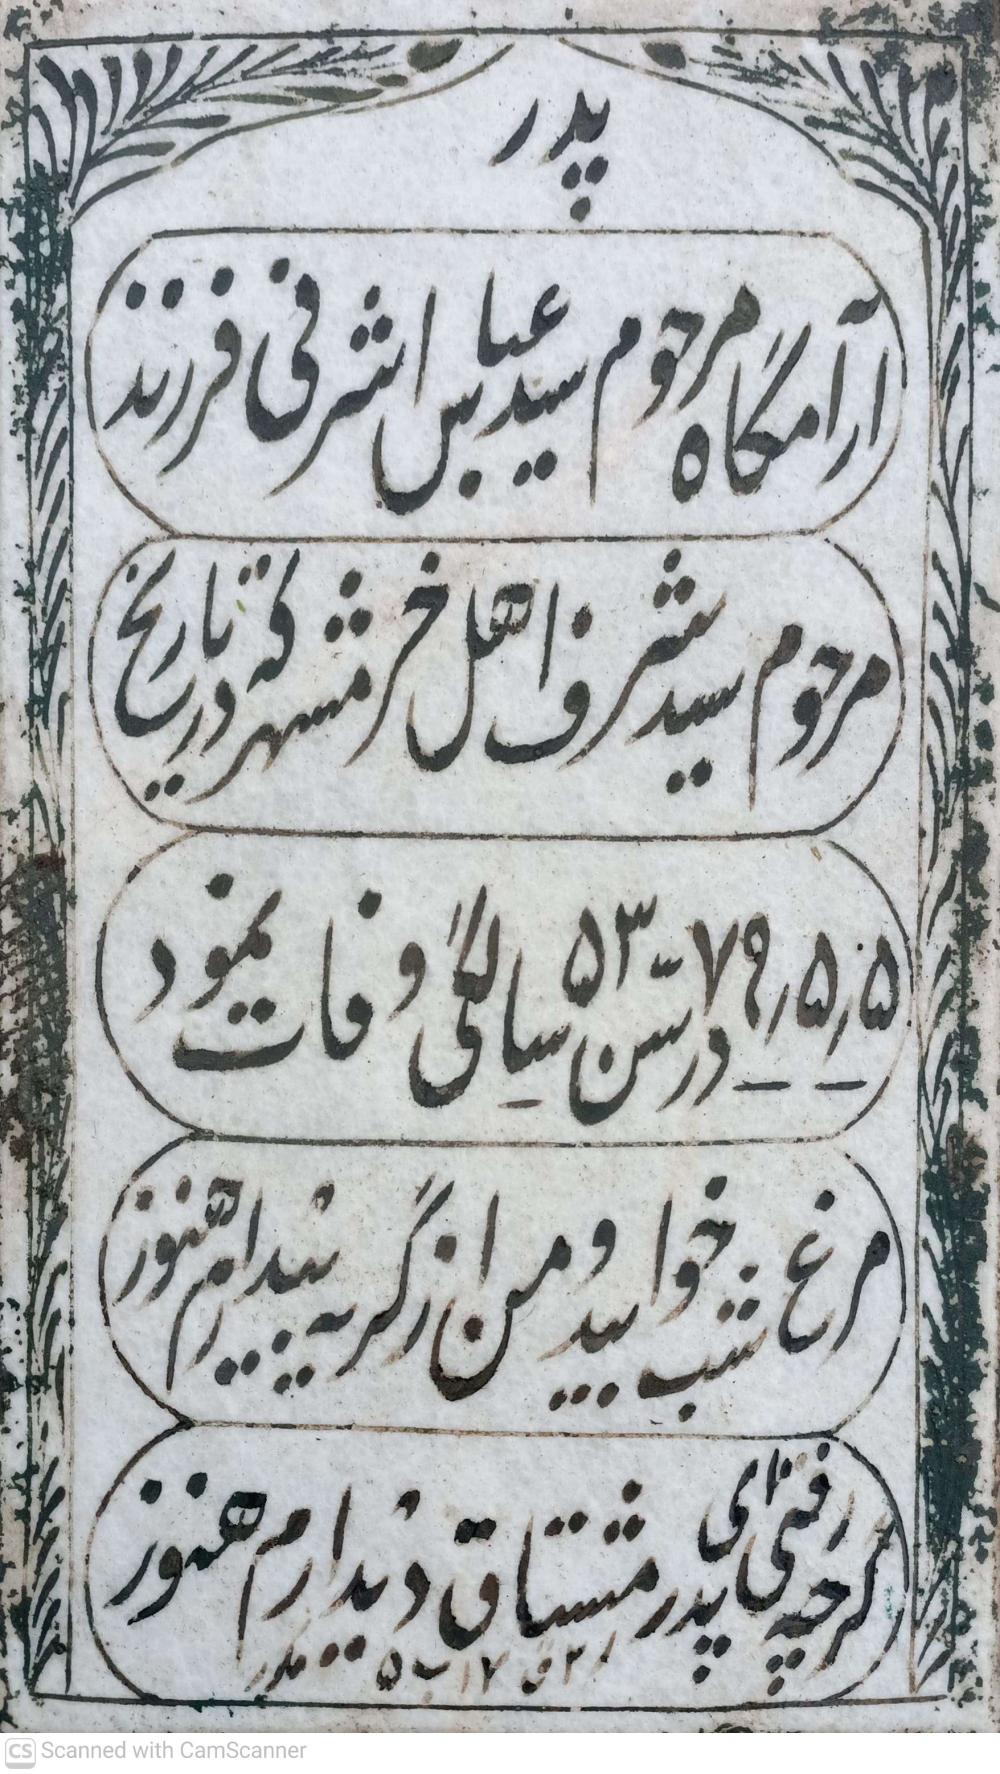 پدر
آرامگاه مرحوم سید عباس اشرفی فرزند
مرحوم سید شرف اهل خرمشهر که در تاریخ
۷۹/۵/۵ در سن ۵۳ سالگی وفات نمود
مرغ شب خوابید و من از گریه بیدارم هنوز
گرچه رفتی ای پدر مشتاق دیدارم هنوز
CS Scanned with CamScanner